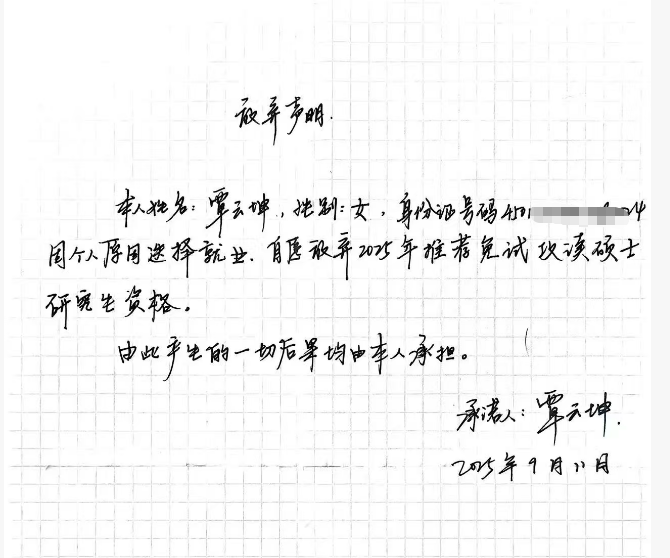 放弃声明.
本人姓名：覃云坤，性别：女，身份证号码450124
因个人原因选择就业、自愿放弃2025年推荐免试攻读硕士
研究生资格。
由此产生的一切后果均由本人承担。
承诺人：覃云坤.
2025年9月11日